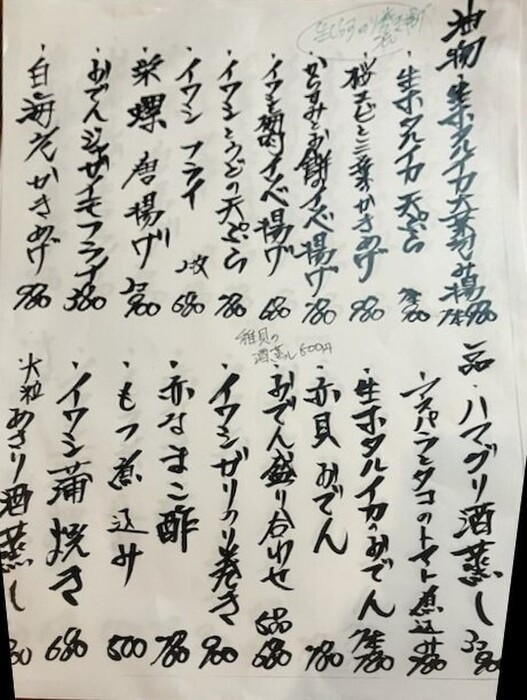 油物
・生ホタルイカ大葉包み揚 7本980
・生ホタルイカ天ぷら 7本900
・桜エビと三葉かきあげ 980
・からすみとお餅のイソベ揚げ 780
・イワシ梅肉イソベ揚げ 680
・イワシとうどの天ぷら 780
・イワシ フライ 2枚 680
・栄螺 唐揚げ 900
・おでんジャガイモフライ 380
・白海老かきあげ 980
一品
・ハマグリ酒蒸し
・アスパラとタコのトマト煮込
・生ホタルイカのおでん 780
・赤貝おでん 780
稚貝の
酒蒸し 500円
・おでん盛り合わせ 680
・イワシザリのり巻き 900
・赤なまこ酢 780
・もつ煮込み 500
・イワシ蒲焼き 680
大粒あさり酒蒸し